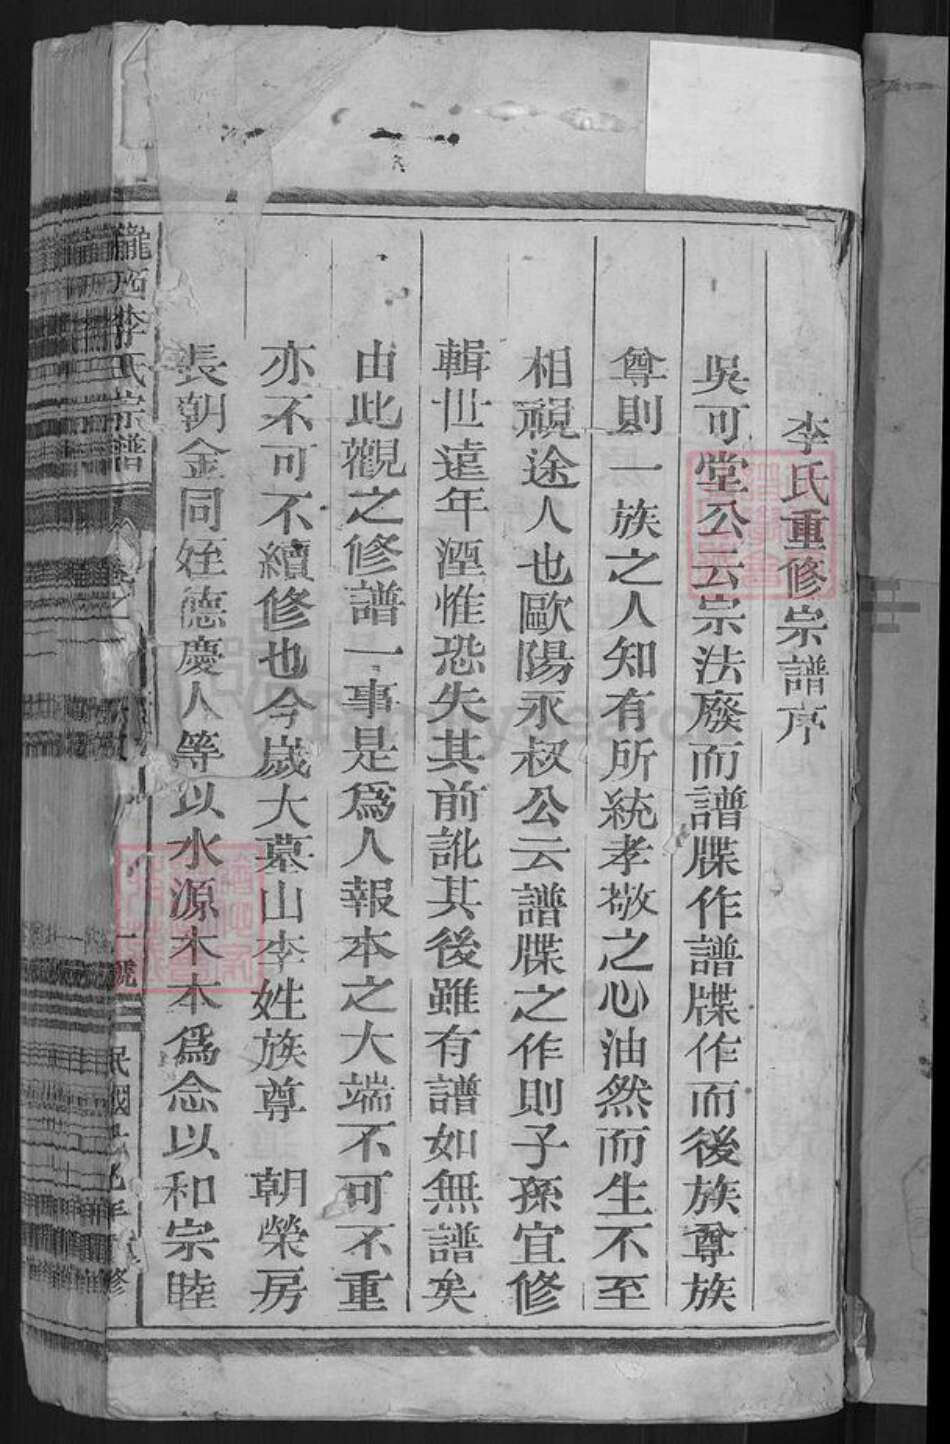 李氏重修宗譜序
吳可堂公云宗法廢而譜牒作譜牒作而後族尊族
尊則一族之人知有所統孝敬之心油然而生不至
相視途人也歐陽永叔公云譜牒之作則子孫宜修
輯世遠年湮惟恐失其前訛其後雖有譜如無譜矣
由此觀之修譜一事是為人報本之大端不可不重
亦不可不續修也今歲大墓山李姓族尊 朝榮房
長朝金同姪德慶人等以水源木本為念以和宗睦
隴西李氏宗譜